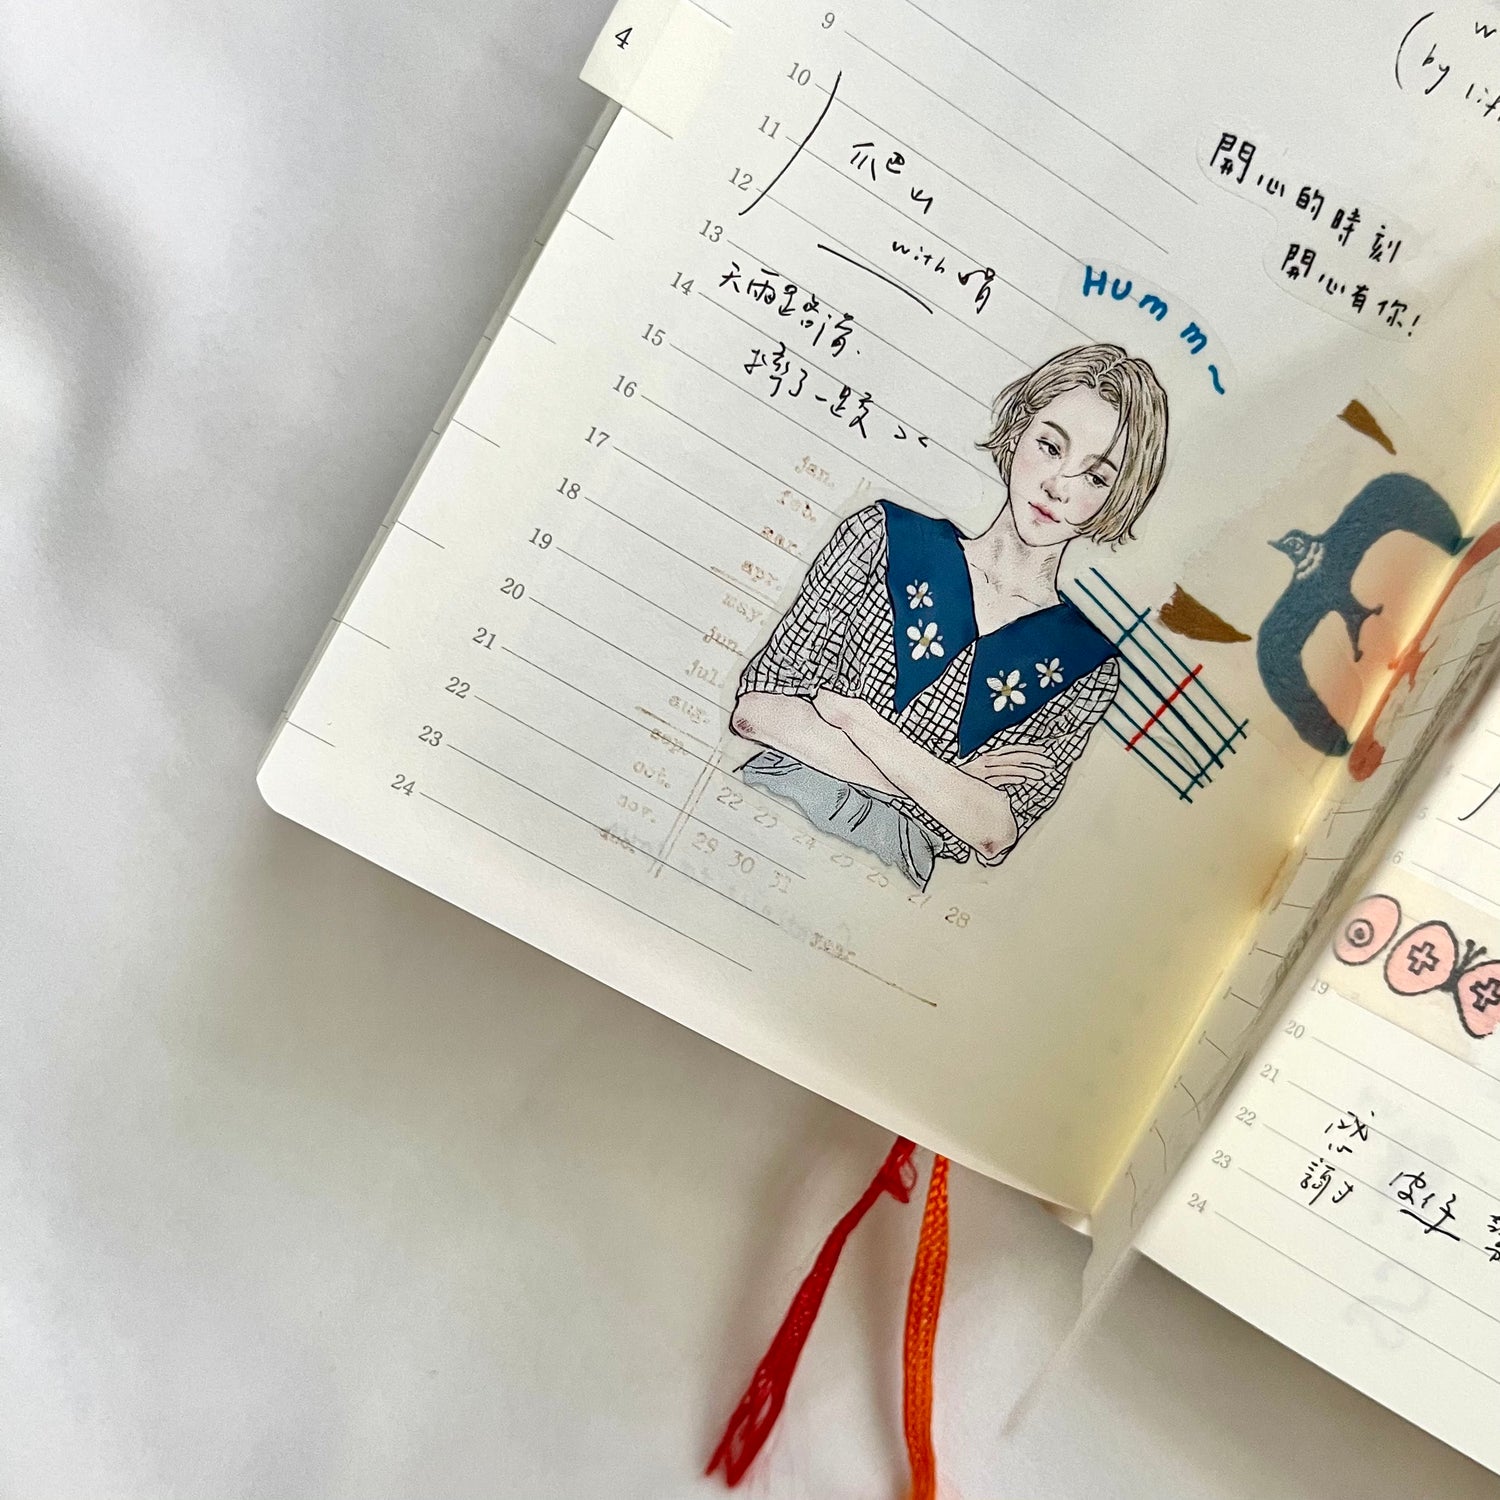 4
9
10
11
12
13
14
15
16
17
18
19
20
21
22
23
24
爬山
with
天雨路滑.
摔了一跤 ><
(by
開心的時刻
開心有你!
Humm~
jan.
feb.
mar.
apr.
may.
jun.
jul.
aug.
sep.
oct.
nov.
22 23 24 25 26 27 28
29 30 31
year
19
20
21
22
23
24
感
謝 皮仔